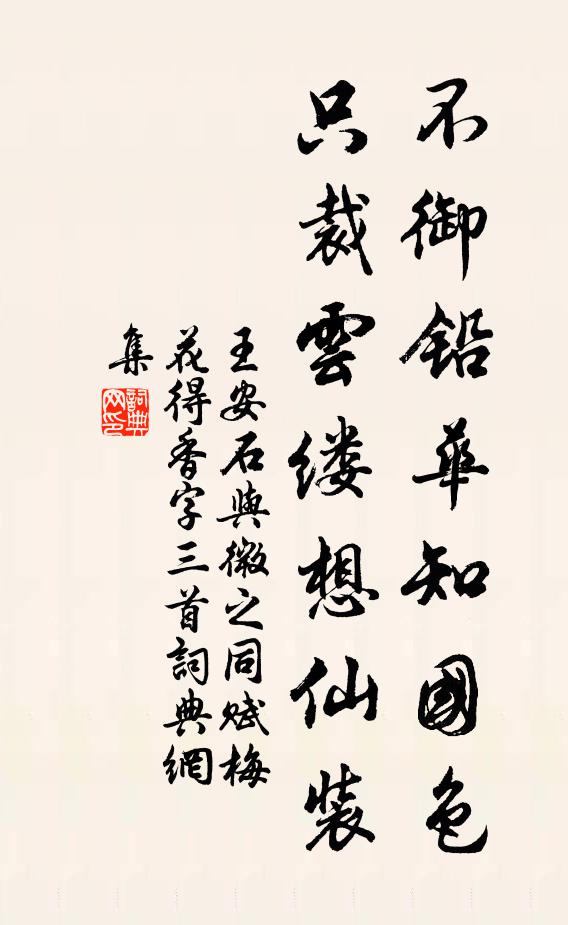 不御铅華知國色
只裁雲缕想仙裝
王安石與微之同赋梅
花得香字三首詞典網
集
詞典
网印